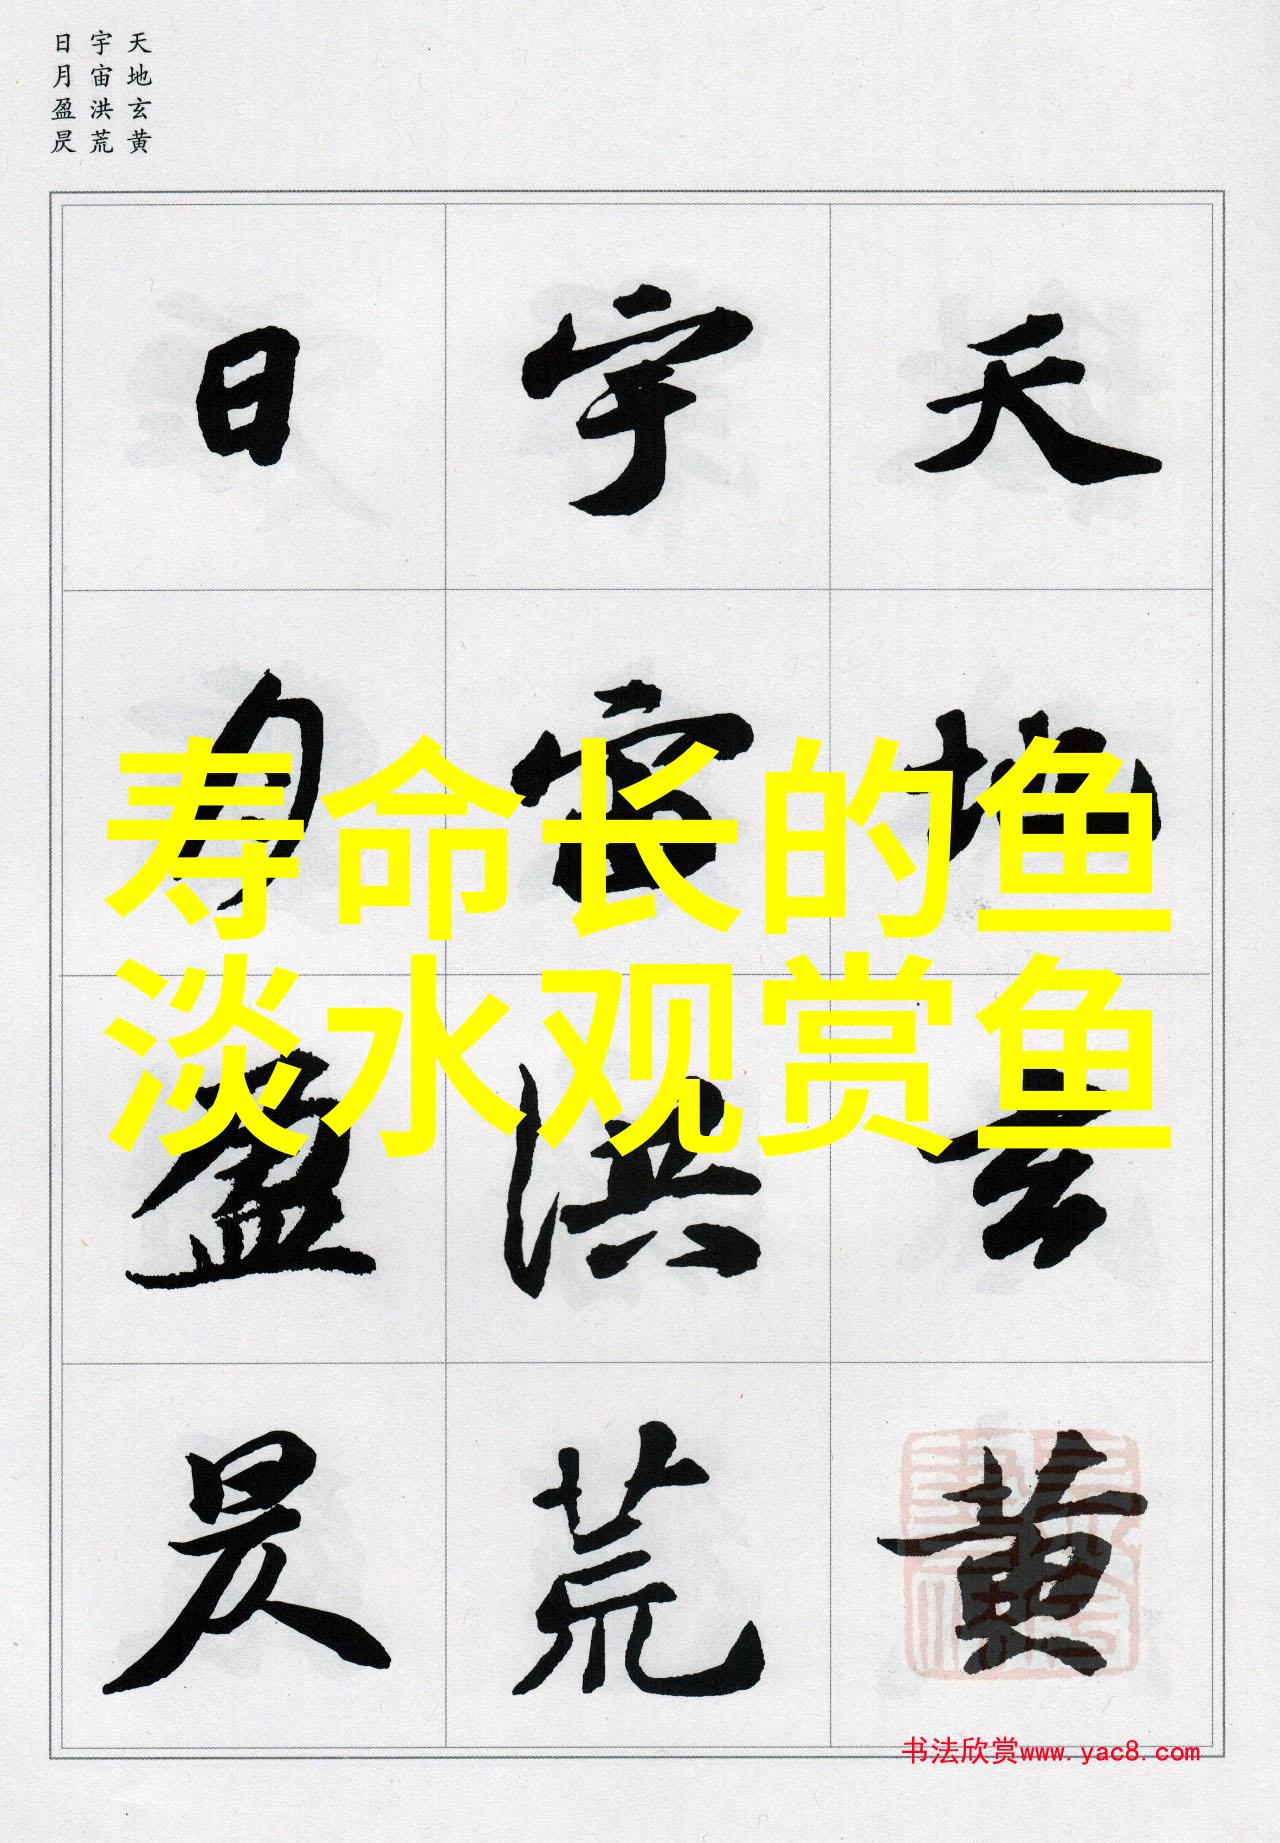 天地玄黄
宇宙洪荒
日月盈昃
寿命长的鱼
淡水观赏鱼
天地玄黄
宇宙洪荒
日月盈昃
书法欣赏www.yac8.com